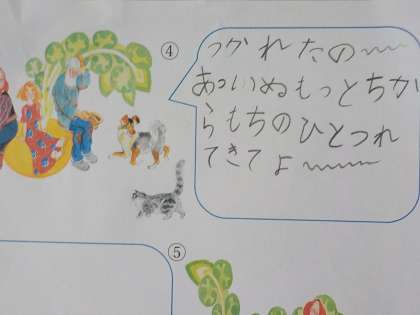 ④
つかれたの〜〜
あついぬもっとちか
らもちのひとつれ
てきてよ〜〜〜
⑤